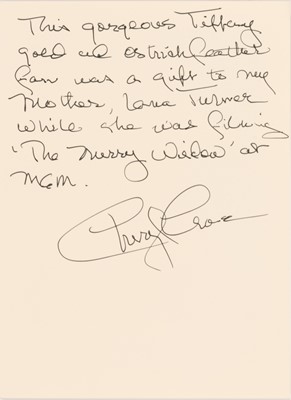 This gorgeous Tiffany
gold and ostrich feather
fan was a gift to my
Mother, Lana Turner
while she was filming
'The Merry Widow' at
MGM.
Cheryl Crane